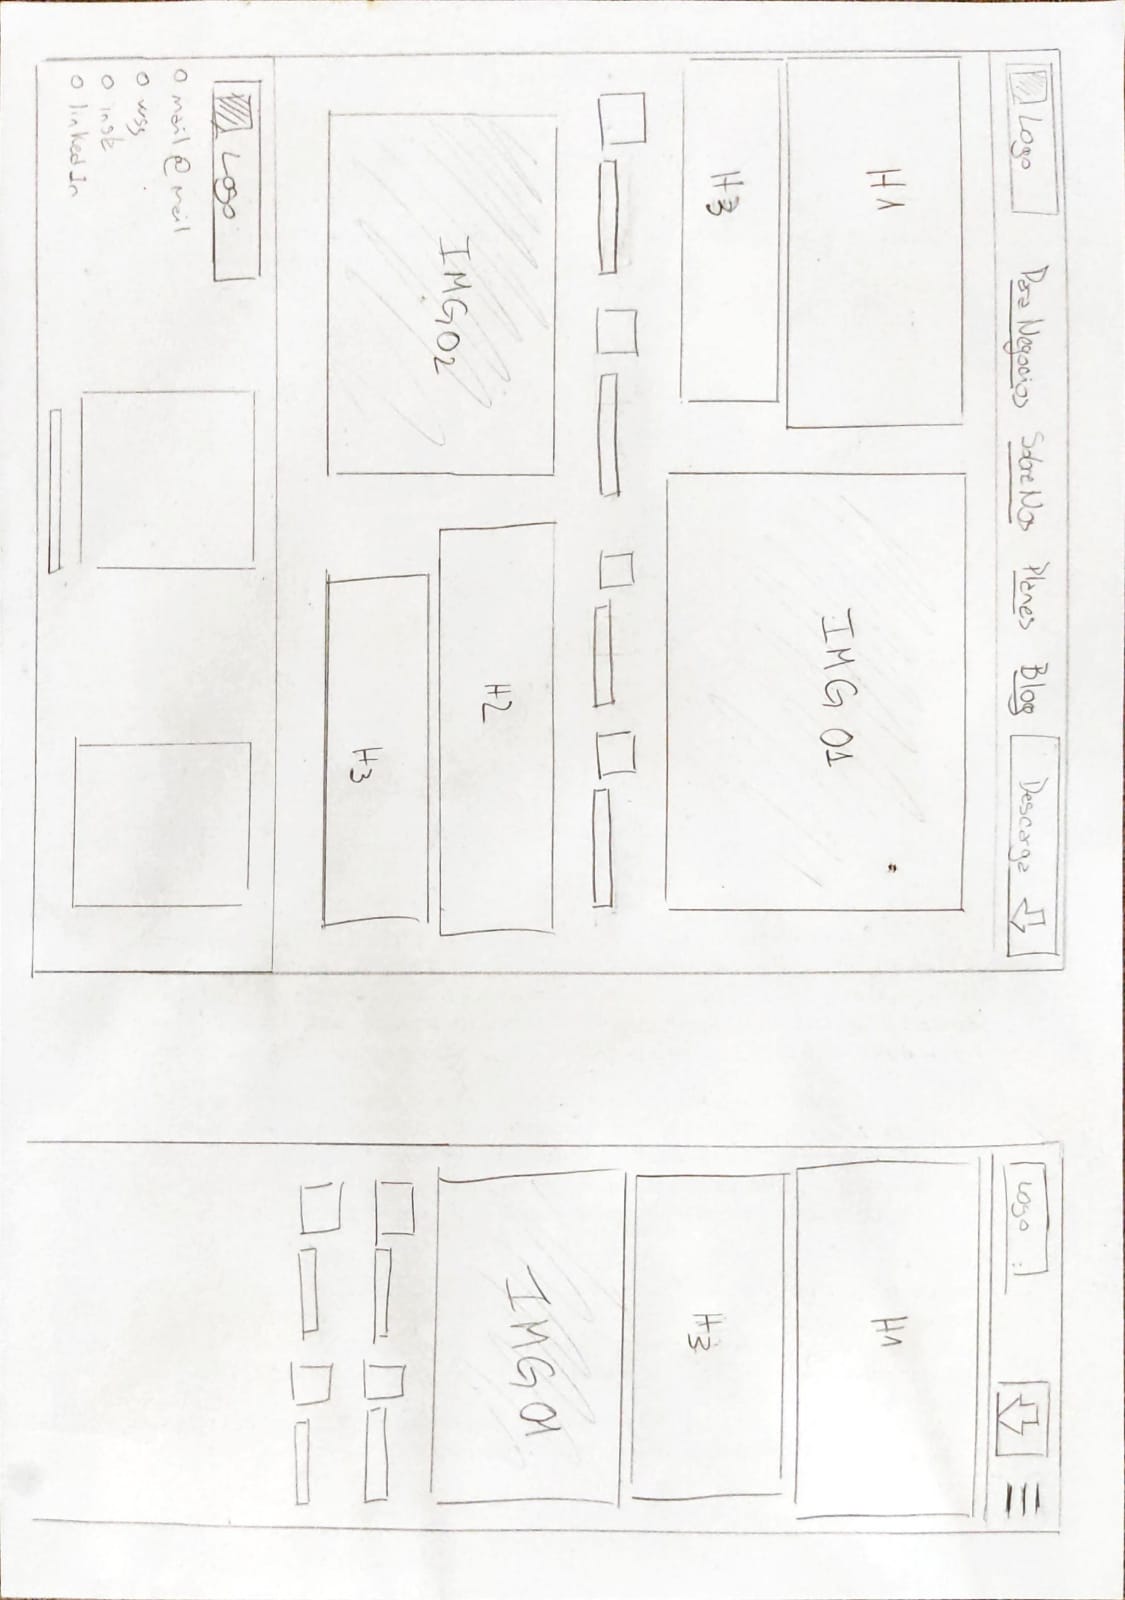 Logo
Para Negocios Sobre Nos Planes Blog Descarga
H1
IMG 01
H3
IMG02
H2
H3
Logo
mail @ mail
wsp
inst
linkedIn
Logo
H1
H3
IMG 01